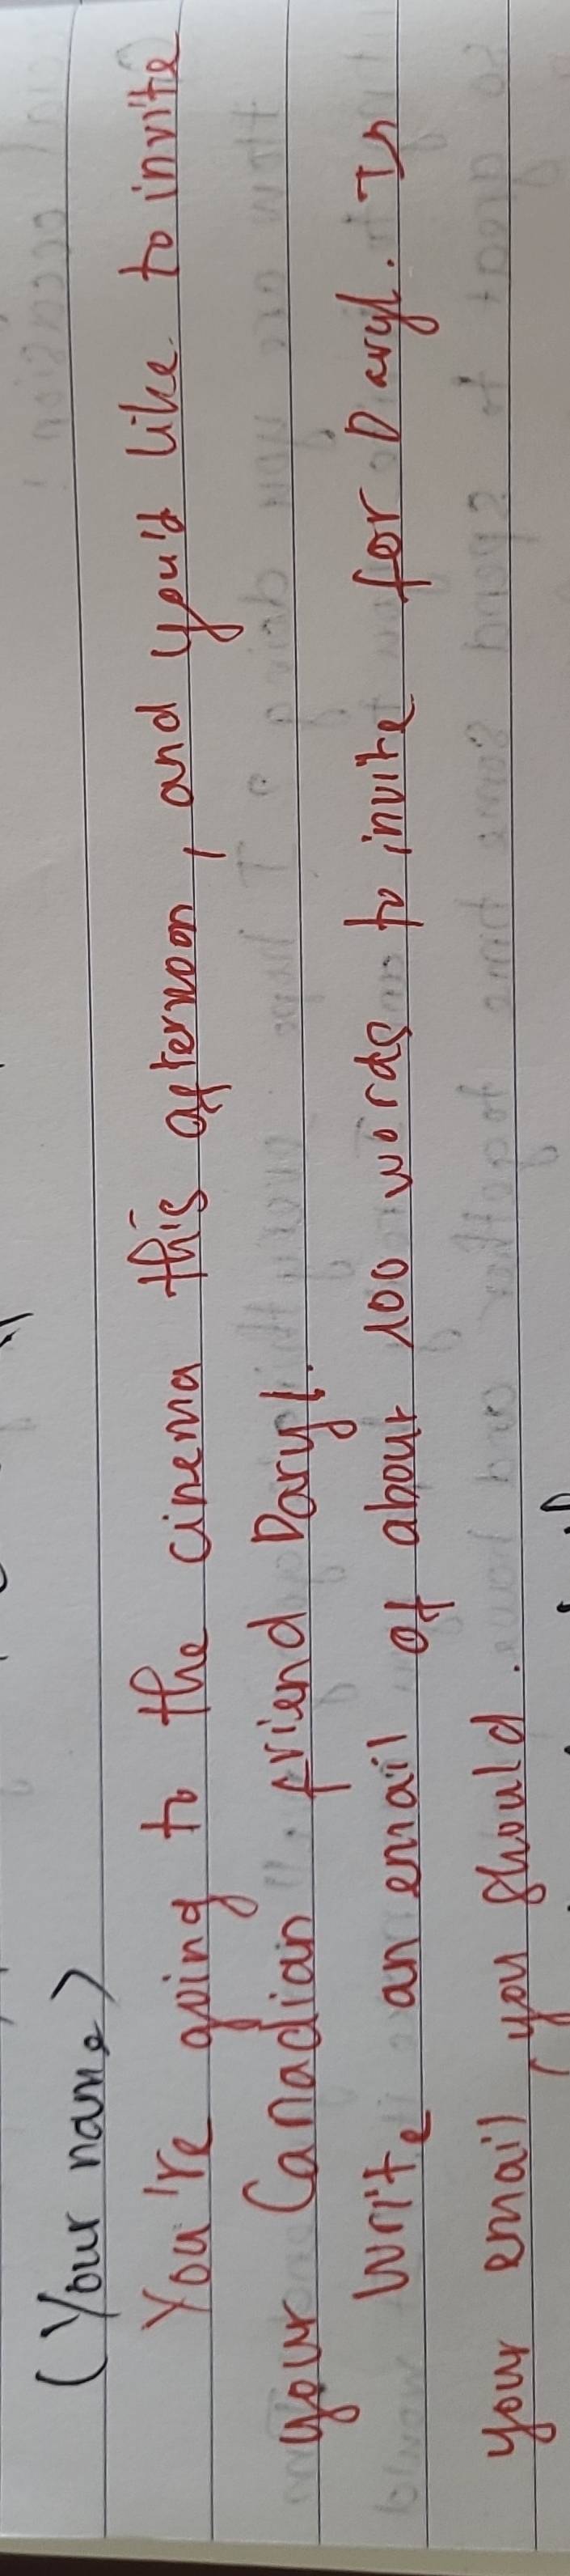 (Your name)
You're going to the cinema this afternoon, and you'd like to invite
your Canadian friend Daryl.
Write an email of about 100 words to invite for Daryl. In
your email, you should.